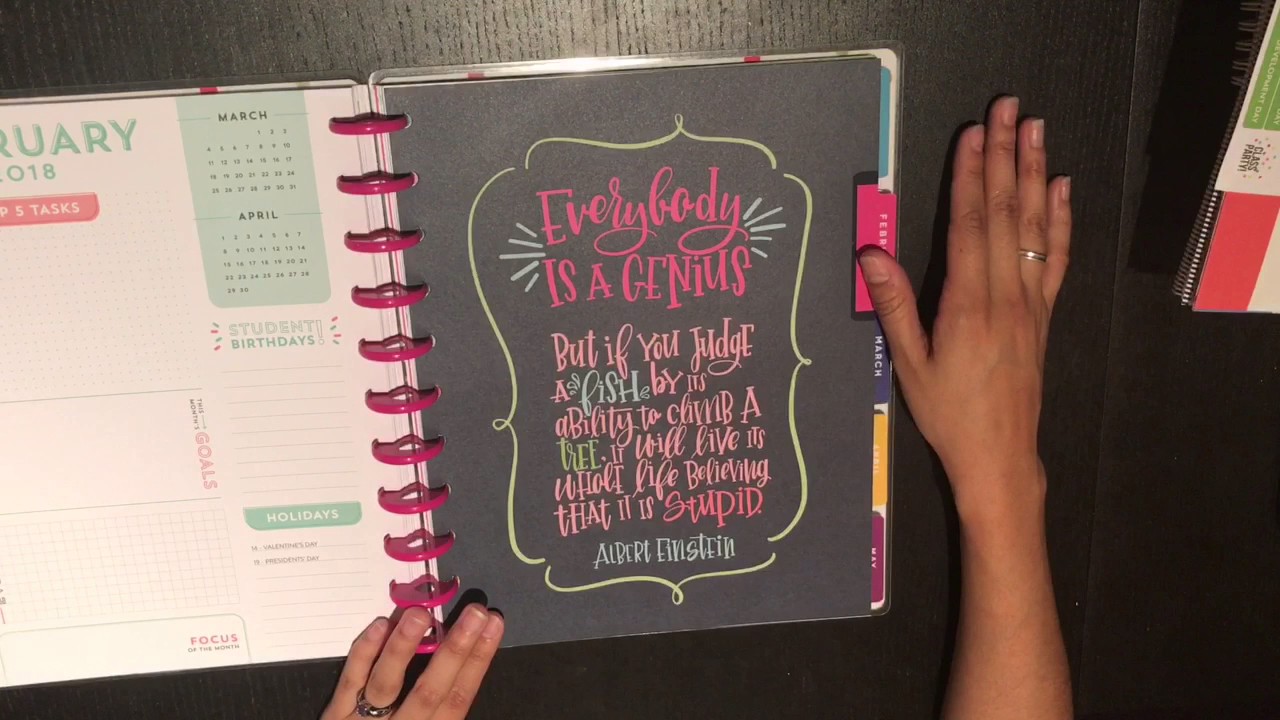 RUARY
2018
P 5 TASKS
MARCH
1 2 3
4 5 6 7 8 9 10
11 12 13 14 15 16 17
18 19 20 21 22 23 24
25 26 27 28 29 30 31
APRIL
1 2 3 4 5 6 7
8 9 10 11 12 13 14
15 16 17 18 19 20 21
22 23 24 25 26 27 28
29 30
STUDENT
BIRTHDAYS!
THIS
MONTH'S
GOALS
HOLIDAYS
14 - VALENTINE'S DAY
FOCUS
OF THE MONTH
Everybody
IS A GENIUS
But if you judge
A fish by its
ability to climb A
tree, it will live its
whole life believing
that it is stupid.
Albert Einstein
FEBR
MARCH
APRIL
MAY
CLASS
PARTY!